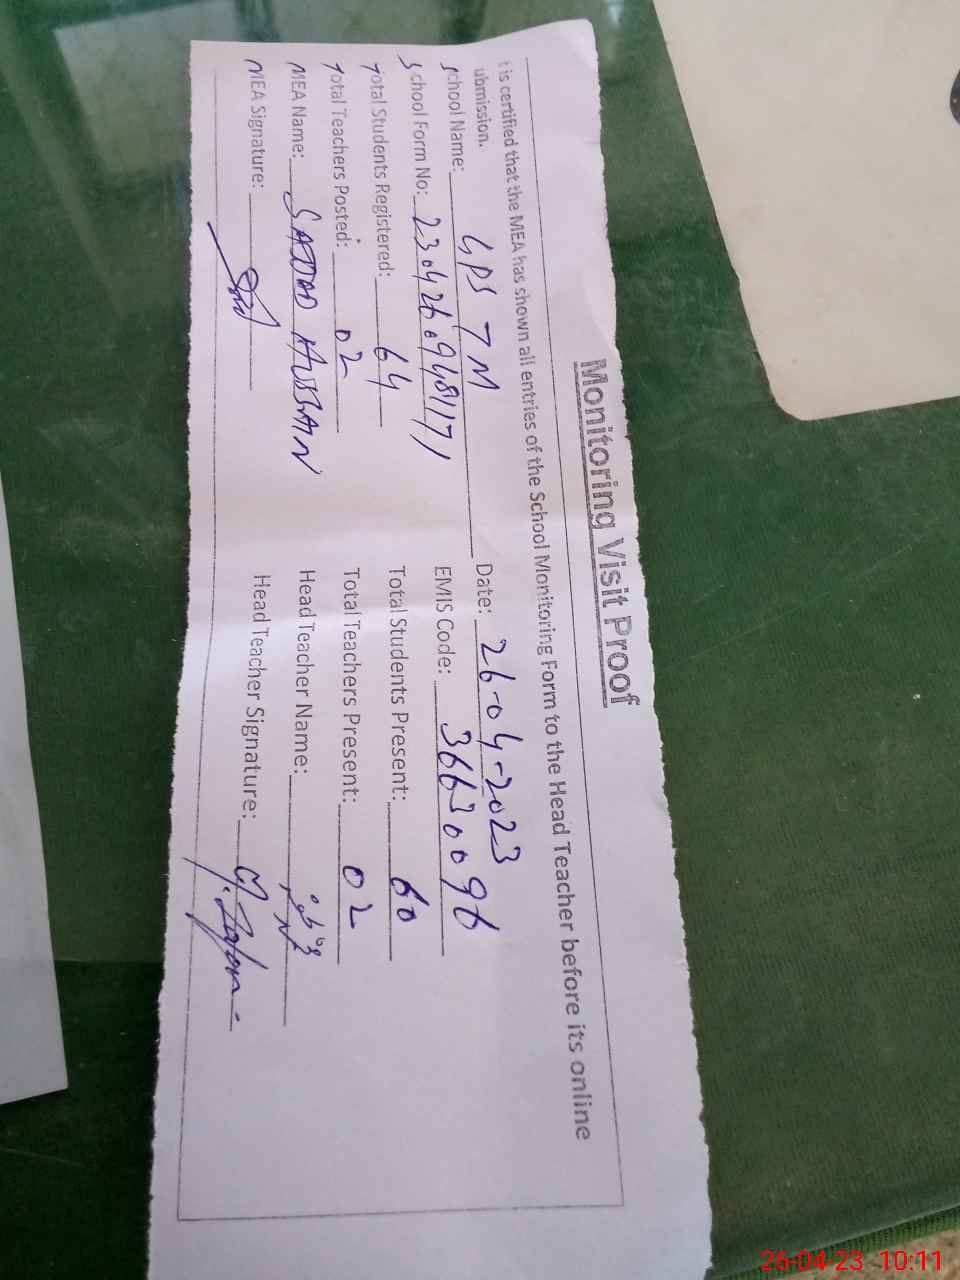 Monitoring Visit Proof
t is certified that the MEA has shown all entries of the School Monitoring Form to the Head Teacher before its online
ubmission.
School Name: GPS 7 M Date: 26-04-2023
School Form No: 2304260948117 EMIS Code: 36630096
Total Students Registered: 64 Total Students Present: 60
Total Teachers Posted: 02 Total Teachers Present: 02
MEA Name: SAJJAD HUSSAIN Head Teacher Name:
MEA Signature: Head Teacher Signature:
26-04-23 10:11